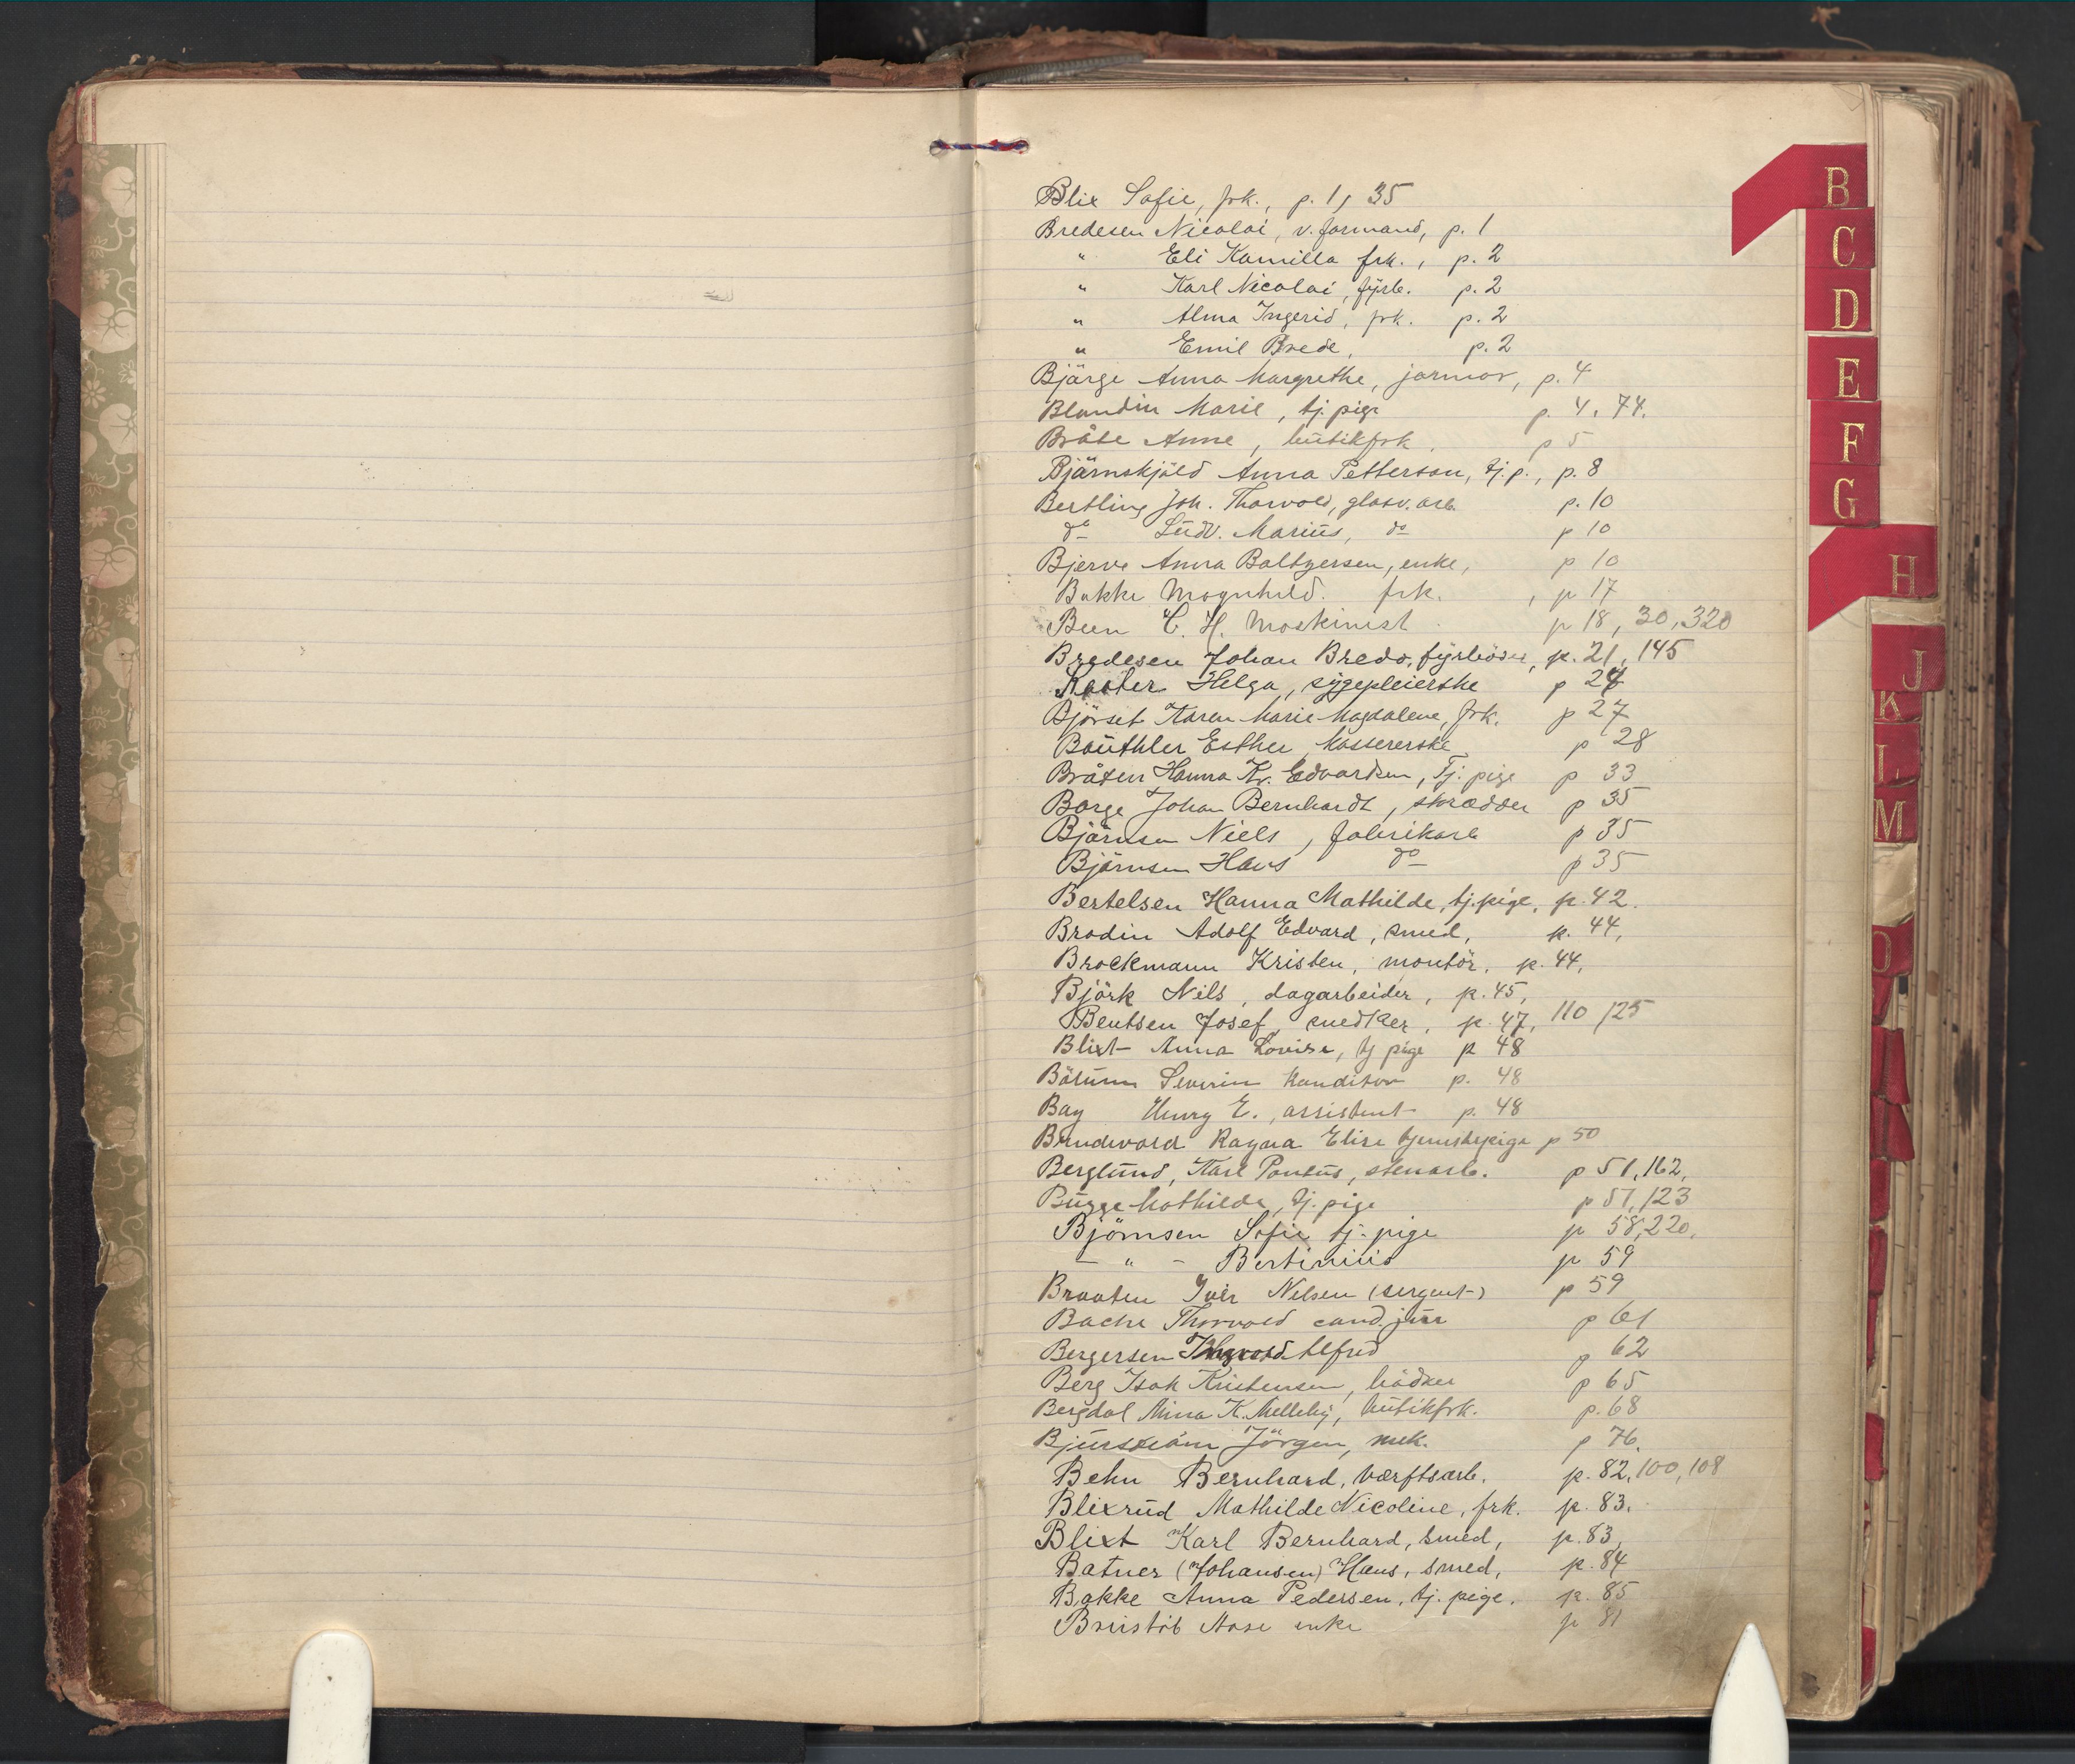 Blix Sofie, frk., p. 1, 35
Bredesen Nicolai, v. formand, p. 1
" Eli Kamilla frk., p. 2
" Karl Nicolai, fyrb. p. 2
" Alma Ingerid, frk. p. 2
" Emil Brede, p. 2
Bjärge Anna Margrethe, jormor, p. 4
Blandin Marie, tj. pige p. 4, 74.
Bråte Anne, butikfrk. p 5
Bjärnskjöld Anna Petterson, tj.p., p. 8
Bertling Joh. Thorvald, glasv. arb. p. 10
do Ludv. Marius, do p 10
Bjerve Anna Baltzersen, enke, p 10
Bakke Magnhild. frk. , p 17
Been C. H. Maskinist p 18, 30, 320
Bredesen Johan Bredo, fyrböder, p. 21, 145
Helga, sygepleierske p 24
Björset Karen Marie Magdalene, frk. p 27
Bauthler Esther, kassererske p 28
Bråten Hanna Kr. Edvardsen, Tj. pige p 33
Borge Johan Bernhardt, skrædder p 35
Björnsen Niels, fabrikarb p 35
Björnsen Hans do p 35
Bertelsen Hanna Mathilde, tj. pige, p. 42.
Brodin Adolf Edvard, smed, p. 44,
Brockmann Kristen, montör, p. 44,
Björk Nils, dagarbeider, p. 45,
Bentsen Josef, snedker, p. 47, 110 125
Blixt Anna Lovise, tj pige p 48
Severin Konditor p. 48
Bay Henry E., assistent p. 48
Ragna Elise tjenestepige p 50
Berglund, Karl Pontus, stenarb. p 51, 162,
Bugge Mathilde, tj. pige p 51, 123
Björnsen Sofie tj. pige p 58, 220,
- " - Bertinius p 59
Braaten Iver Nilsen (sergent) p 59
Bache Thorvald cand. jur p 61
Bergersen Alfred p 62
Berg Isak Kristensen, bödker p 65
Bergdal Anna K. Melleby, butikfrk. p. 68
Jörgen, mek. p 76.
Behn Bernhard, værftsarb. p. 82, 100, 108
Blixrud Mathilde Nicoline, frk. p. 83.
Blixt Karl Bernhard, smed, p. 83,
Batner (Johansen) Hans, smed, p. 84
Bakke Anna Pedersen, tj. pige. p. 85
Aase enke p 81
B
C
D
E
F
G
H
J
K
L
M
O